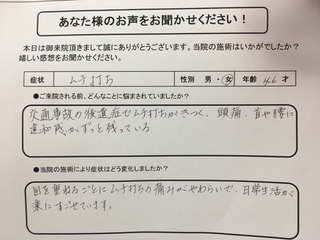 あなた様のお声をお聞かせください！
本日は御来院頂きまして誠にありがとうございます。当院の施術はいかがでしたか？
嬉しい感想をお聞かせください。
症状 ムチ打ち 性別 男・女 年齢 46 才
●ご来院される前、どんなことに悩まされていましたか？
交通事故の後遺症でムチ打ちがきつく、頭痛、首や腰に
違和感がずっと残っている。
●当院の施術により症状はどう変化しましたか？
回を重ねるごとにムチ打ちの痛みがやわらいで、日常生活が
楽にすごせています。